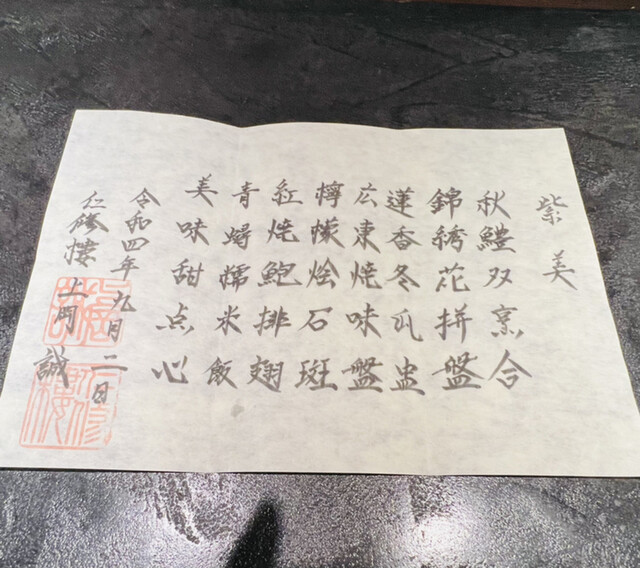 紫美
秋鱧双烹合
錦綉花拼盤
蓮香冬瓜盅
広東焼味盤
檸檬烩石斑
紅焼鮑排翅
青蟳糯米飯
美味甜点心
令和四年九月二日
仁修樓 上岡 誠